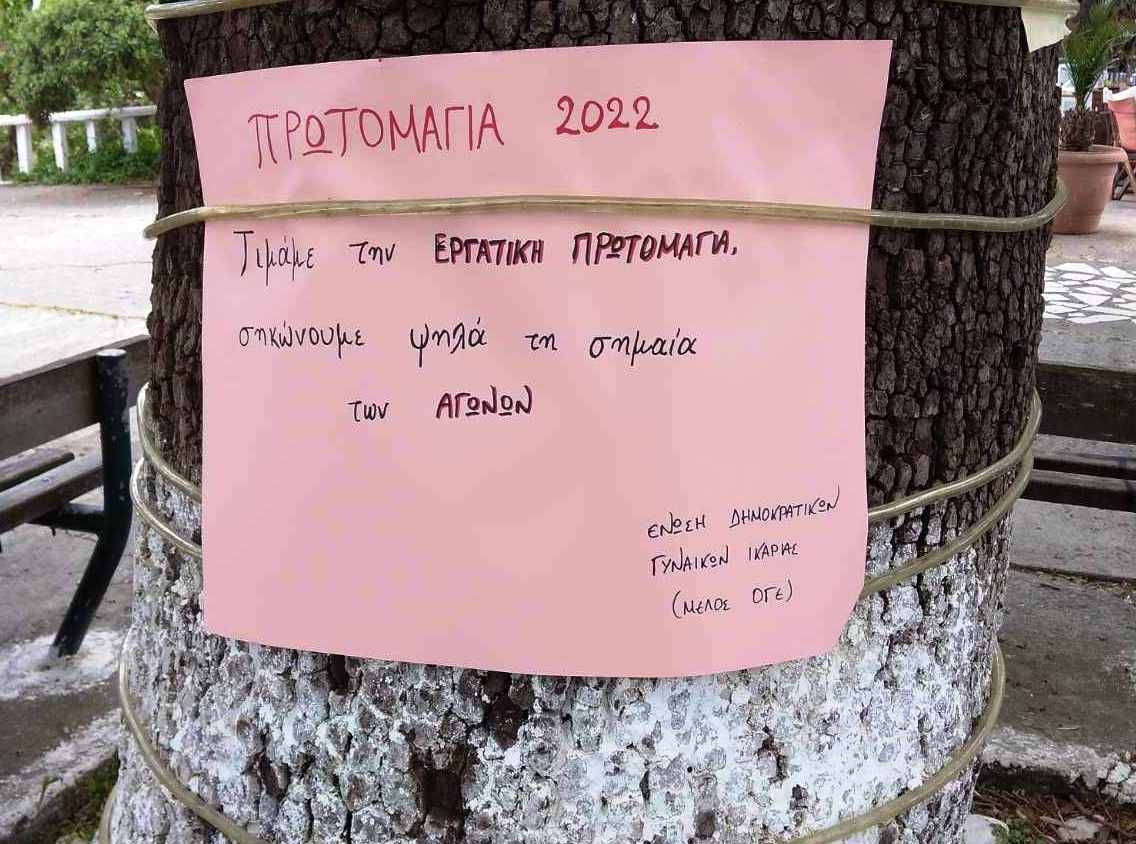 ΠΡΩΤΟΜΑΓΙΑ 2022
Τιμάμε την ΕΡΓΑΤΙΚΗ ΠΡΩΤΟΜΑΓΙΑ,
σηκώνουμε ψηλά τη σημαία
των ΑΓΩΝΩΝ
ΕΝΩΣΗ ΔΗΜΟΚΡΑΤΙΚΩΝ
ΓΥΝΑΙΚΩΝ ΙΚΑΡΙΑΣ
(ΜΕΛΟΣ ΟΓΕ)